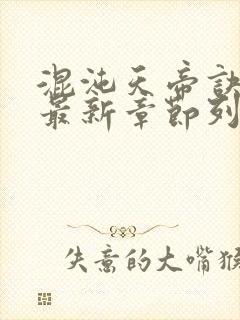 混沌天帝诀
最新章節列
失意的大嘴猴